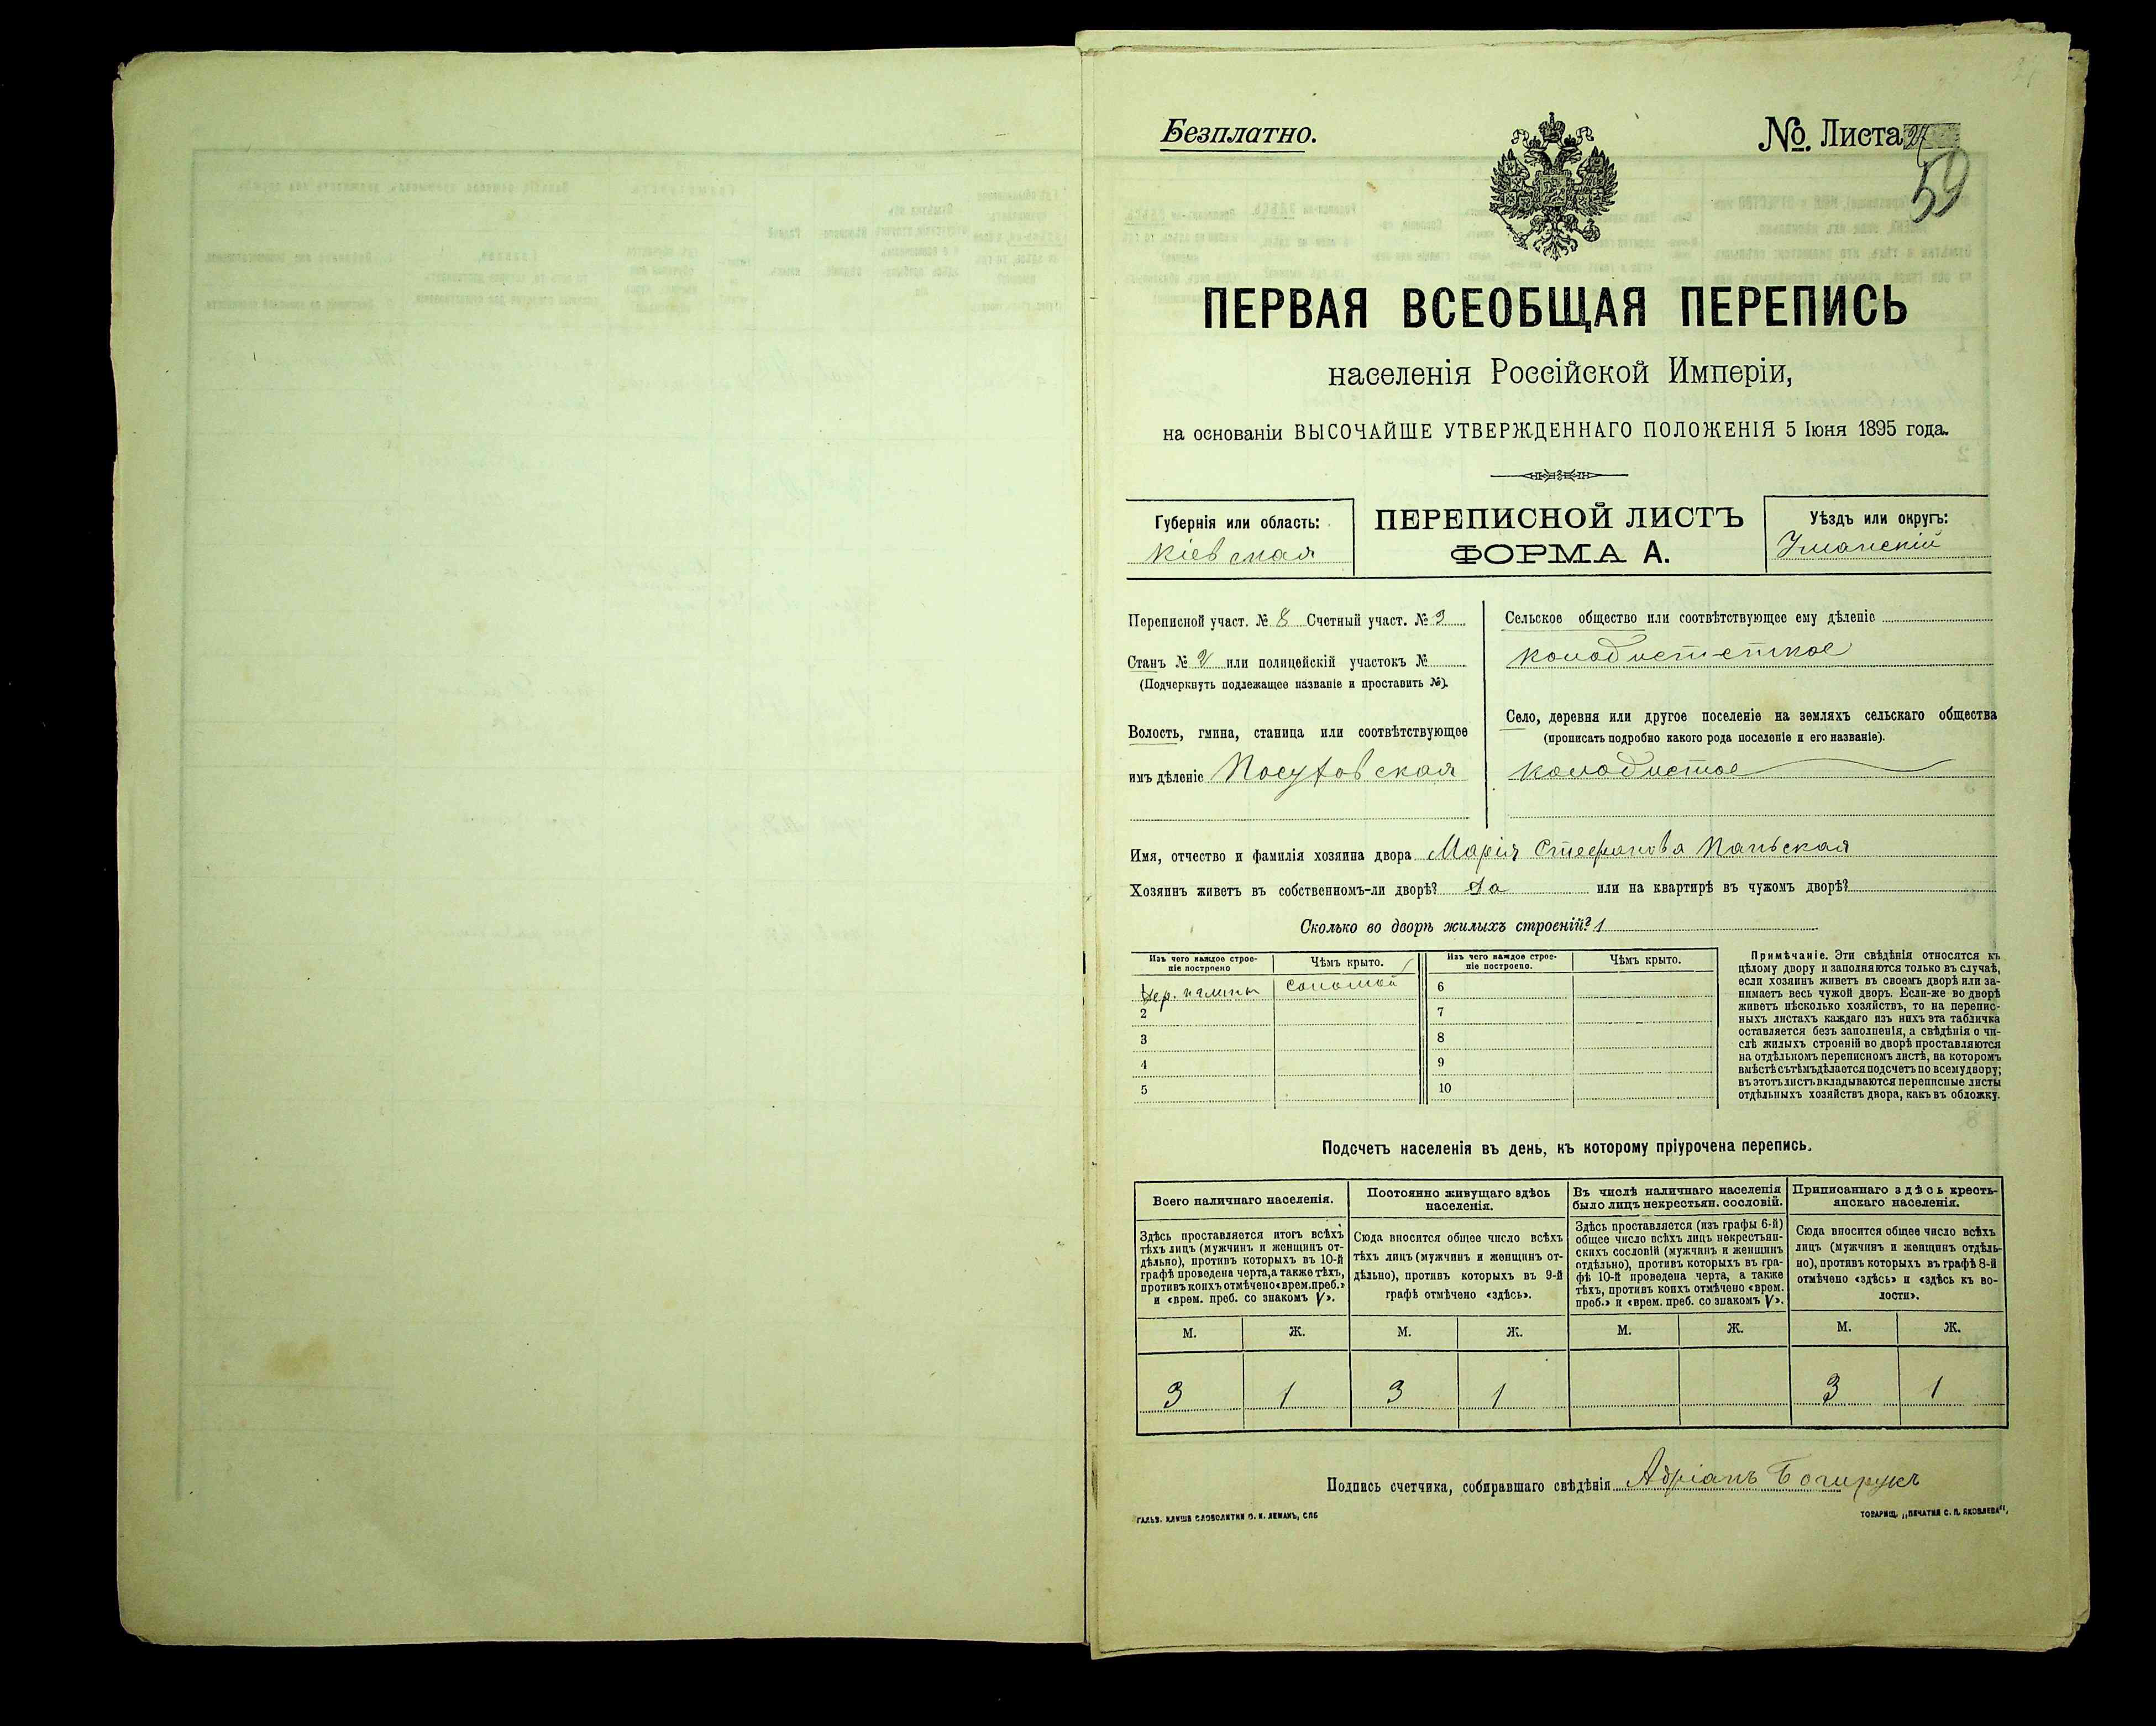 Безплатно.
№. Листа 27
59
ПЕРВАЯ ВСЕОБЩАЯ ПЕРЕПИСЬ
населенія Россійской Имперіи,
на основаніи ВЫСОЧАЙШЕ УТВЕРЖДЕННАГО ПОЛОЖЕНІЯ 5 Іюня 1895 года.
Губернія или область:
Кіевская
ПЕРЕПИСНОЙ ЛИСТЪ
ФОРМА А.
Уѣздъ или округъ:
Уманскій
Переписной участ. № 8 Счетный участ. № 3
Станъ № 2 или полицейскій участокъ №
(Подчеркнуть подлежащее названіе и проставить №).
Волость, гмина, станица или соотвѣтствующее
имъ дѣленіе Посуховская
Сельское общество или соотвѣтствующее ему дѣленіе
Колодистское
Село, деревня или другое поселеніе на земляхъ сельскаго общества
(прописать подробно какого рода поселеніе и его названіе).
Колодистое
Имя, отчество и фамилія хозяина двора Марія Стефанова Паньская
Хозяинъ живетъ въ собственномъ-ли дворѣ? Да или на квартирѣ въ чужомъ дворѣ?
Сколько во дворѣ жилыхъ строеній? 1
Изъ чего каждое строе-
ніе построено
Чѣмъ крыто.
Изъ чего каждое строе-
ніе построено.
Чѣмъ крыто.
1 дер. соломой
2
3
4
5
6
7
8
9
10
Примѣчаніе. Эти свѣдѣнія относятся къ
цѣлому двору и заполняются только въ случаѣ,
если хозяинъ живетъ въ своемъ дворѣ или за-
нимаетъ весь чужой дворъ. Если-же во дворѣ
живетъ нѣсколько хозяйствъ, то на перепис-
ныхъ листахъ каждаго изъ нихъ эта табличка
оставляется безъ заполненія, а свѣдѣнія о чи-
слѣ жилыхъ строеній во дворѣ проставляются
на отдѣльномъ переписномъ листѣ, на которомъ
вмѣстѣ съ тѣмъ дѣлается подсчетъ по всему двору;
въ этотъ листъ вкладываются переписные листы
отдѣльныхъ хозяйствъ двора, какъ въ обложку.
Подсчетъ населенія въ день, къ которому пріурочена перепись.
Всего наличнаго населенія.
Здѣсь проставляется итогъ всѣхъ
тѣхъ лицъ (мужчинъ и женщинъ от-
дѣльно), противъ которыхъ въ 10-й
графѣ проведена черта, а также тѣхъ,
противъ коихъ отмѣчено «врем. преб.»
и «врем. преб. со знакомъ V».
Постоянно живущаго здѣсь
населенія.
Сюда вносится общее число всѣхъ
тѣхъ лицъ (мужчинъ и женщинъ от-
дѣльно), противъ которыхъ въ 9-й
графѣ отмѣчено «здѣсь».
Въ числѣ наличнаго населенія
было лицъ некрестьян. сословій.
Здѣсь проставляется (изъ графы 6-й)
общее число всѣхъ лицъ некрестьян-
скихъ сословій (мужчинъ и женщинъ
отдѣльно), противъ которыхъ въ гра-
фѣ 10-й проведена черта, а также
тѣхъ, противъ коихъ отмѣчено «врем.
преб.» и «врем. преб. со знакомъ V».
Приписаннаго здѣсь кресть-
янскаго населенія.
Сюда вносится общее число всѣхъ
лицъ (мужчинъ и женщинъ отдѣль-
но), противъ которыхъ въ графѣ 8-й
отмѣчено «здѣсь» и «здѣсь къ во-
лости».
М. Ж. М. Ж. М. Ж. М. Ж.
3 1 3 1 3 1
Подпись счетчика, собиравшаго свѣдѣнія Адріанъ
ГАЛЬВ. КЛИШЕ СЛОВОЛИТНИ О. И. ЛЕМАНЪ, СПБ
ТОВАРИЩ. „ПЕЧАТНЯ С. П. ЯКОВЛЕВА“,